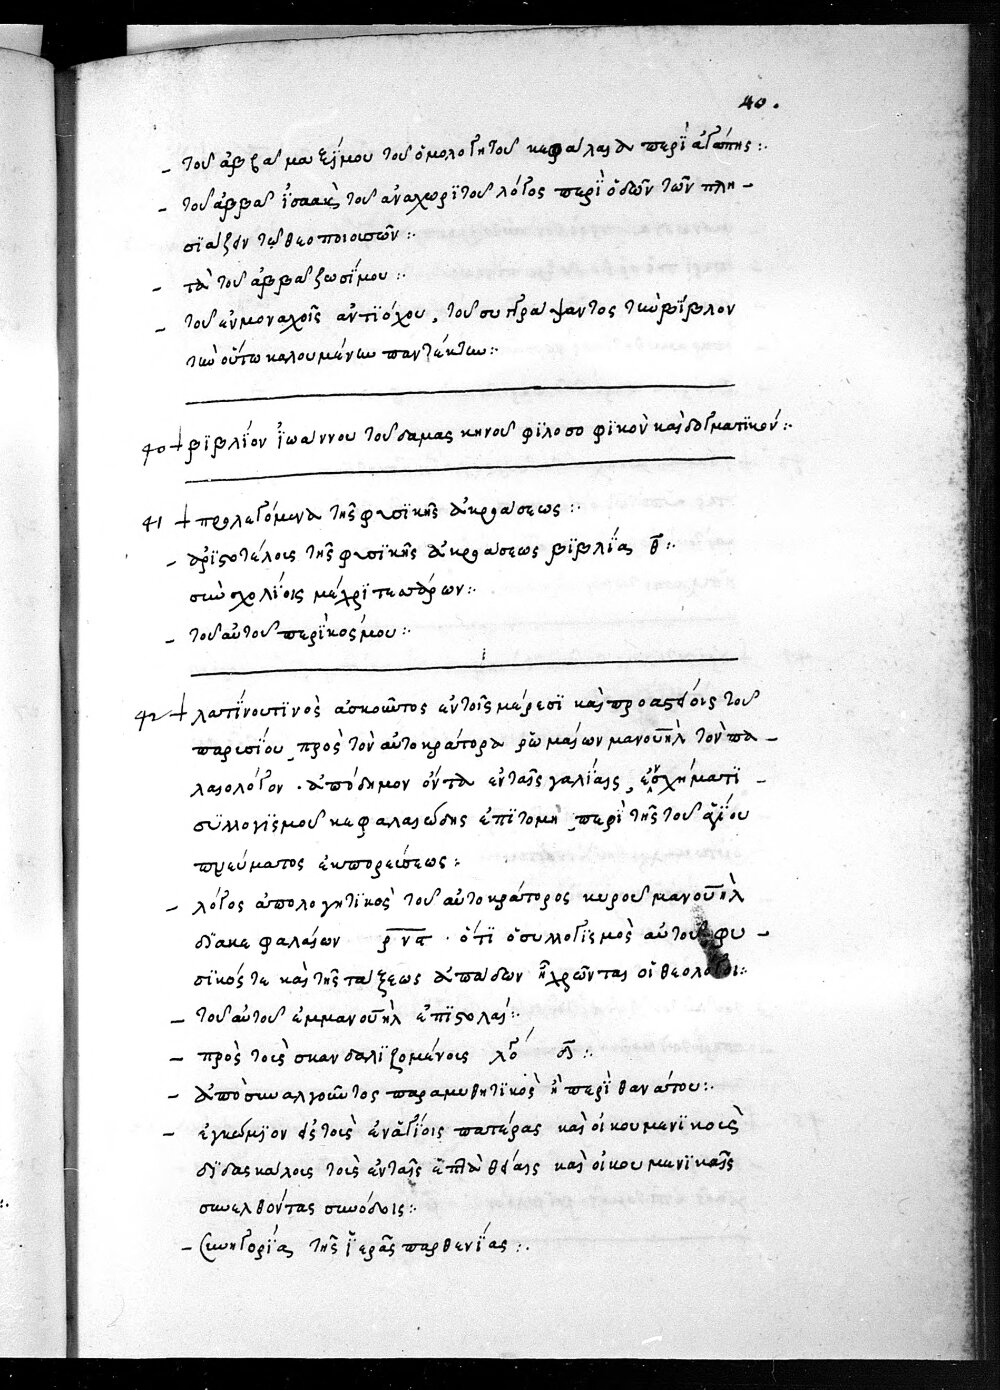 40.
– τοῦ ἀββᾶ μαξΐμου τοῦ ὁμολογητοῦ κεφάλαια περὶ ἀγάπης :.
– τοῦ ἀββᾶ ἰσαὰκ τοῦ ἀναχωρΐτου λόγος περὶ ὁδῶν τῶν πλη –
σϊάζειν τῷ θεῷ ποιουσῶν :.
– τὰ τοῦ ἀββᾶ ζωσΐμου :.
– τοῦ ἐν μοναχοῖς ἀντϊόχου, τοῦ συγγράψαντος τὴν βΐβλον
τὴν οὕτω καλουμένην πανδέκτην :.
40 + βϊβλΐον ἰωάννου τοῦ δαμασκηνοῦ φϊλοσοφϊκὸν καὶ δογματϊκόν :.
41 + προλεγόμενα τῆς φυσϊκῆς ἀκροάσεως :.
– ἀρϊστοτέλους τῆς φυσϊκῆς ἀκροάσεως βϊβλΐα θ̄ :.
σὺν σχολΐοις μέχρϊ τεσσάρων :.
– τοῦ αὐτοῦ περὶ κόσμου :.
42 + λατΐνου τϊνὸς ἀσκοῦντος ἐν τοῖς μέρεσϊ καὶ προαστείοις τοῦ
παρισΐου, πρὸς τὸν αὐτοκράτορα ῥωμαίων μανουὴλ τὸν πα –
λαιολόγον. ἀπόδημον ὄντα ἐν ταῖς γαλΐαις, ἐν σχήματϊ –
συλλογϊσμοῦ κεφαλαιώδης ἐπϊτομὴ, περὶ τῆς τοῦ ἁγΐου
πνεύματος ἐκπορεύσεως :
– λόγος ἀπολογητϊκὸς τοῦ αὐτοκράτορος κυροῦ μανουὴλ
δϊὰ κεφαλαίων ρ̄ν̄ᾱ. ὅτϊ ὁ συλλογϊσμὸς αὐτοῦ φυ –
σϊκός τε καὶ τῆς τάξεως ἀπᾴδων ᾗ χρῶνται οἱ θεολόγοι :.
– τοῦ αὐτοῦ ἐμμανουὴλ ἐπϊστολαί :.
– πρὸς τοὺς σκανδαλϊζομένους λόγοι :.
– ἀπὸ συναλγοῦντος παραμυθητϊκὸς ἢ περὶ θανάτου :.
– ἐγκώμϊον εἰς τοὺς ἐν ἁγΐοις πατέρας καὶ οἰκουμενϊκοὺς
δϊδασκάλους τοὺς ἐν ταῖς ἑπτὰ θείαις καὶ οἰκουμενϊκαῖς
συνελθόντας συνόδοις :.
– συνηγορΐα τῆς ἱερᾶς παρθενΐας :.